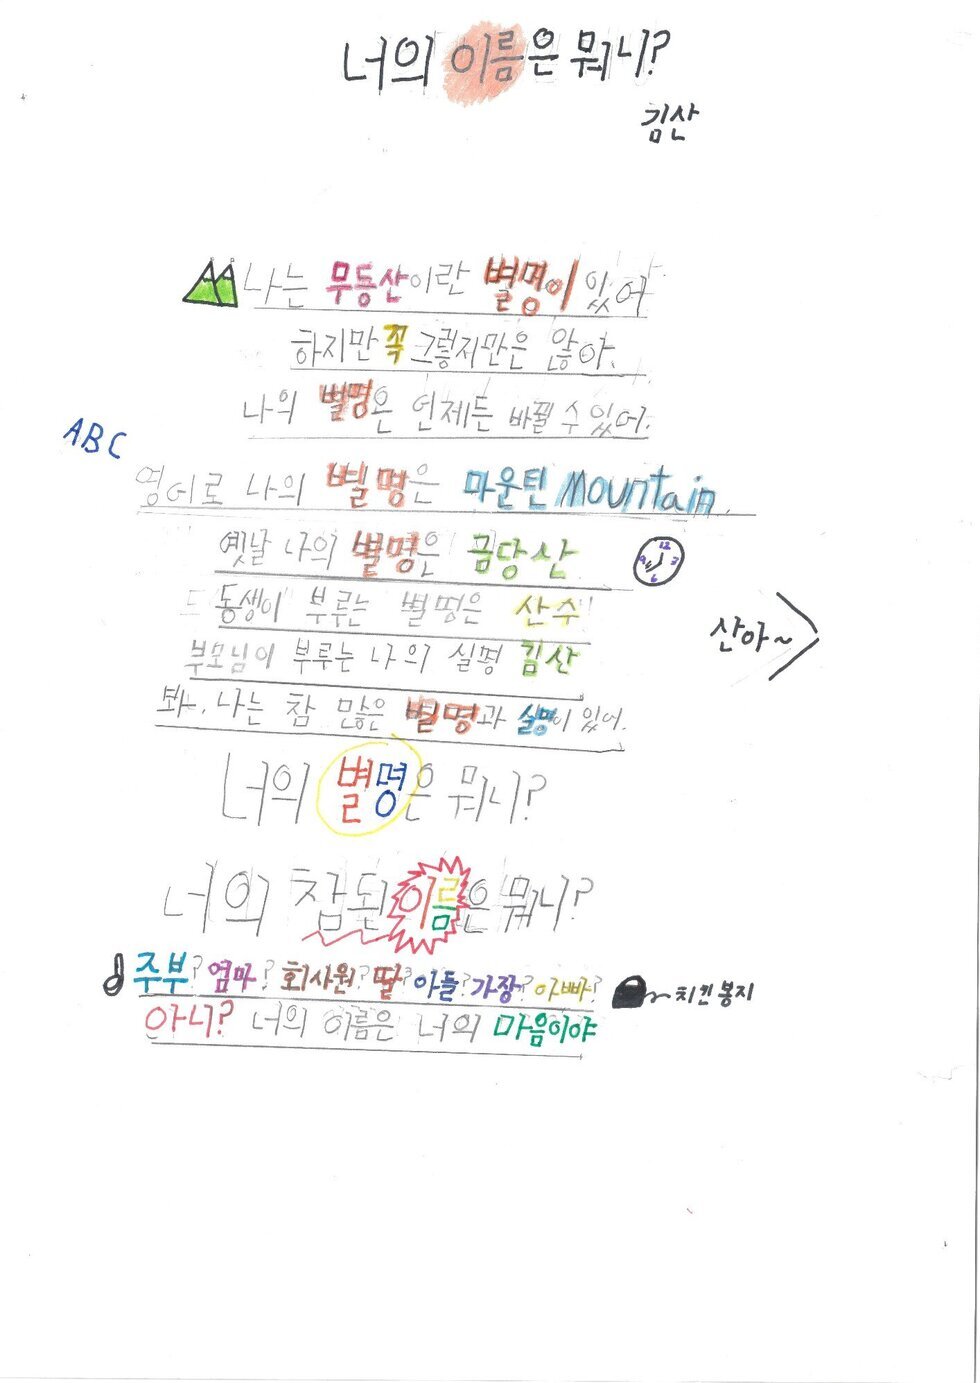 너의 이름은 뭐니?
김산
나는 무등산이란 별명이 있어
하지만 꼭 그렇지만은 않아.
나의 별명은 언제든 바뀔 수 있어.
ABC
영어로 나의 별명은 마운틴 Mountain.
옛날 나의 별명은 금당산
12
9 3
6
동생이 부루는 별명은 산수
산아~
부모님이 부루는 나의 실명 김산
봐, 나는 참 많은 별명과 실명이 있어.
너의 별명은 뭐니?
너의 참된 이름은 뭐니?
주부? 엄마? 회사원? 딸? 아들? 가장? 아빠?
치킨봉지
아니? 너의 이름은 너의 마음이야